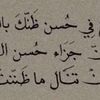 في حُسن ظَنّك با
جزاء حُسن ال
تنال ما ظننت